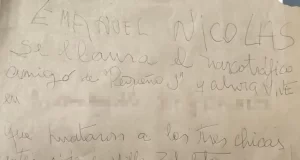 EMANUEL NICOLAS
Se llama el narcotráfico
amigo de "Pequeño J" y ahora VIVE
en
que mataron a las Tres chicas